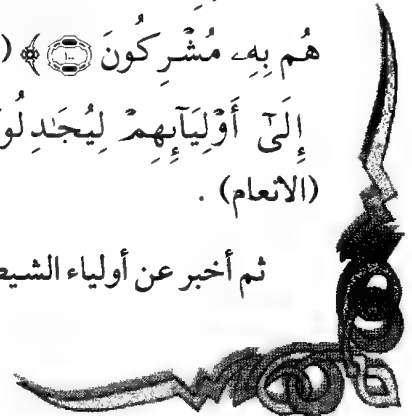 هُم بِهِۦ مُشْرِكُونَ ﴿١٠٠﴾ ﴾ (
إِلَىٰٓ أَوْلِيَآئِهِمْ لِيُجَـٰدِلُو
(الانعام) .
ثم أخبر عن أولياء الشيط